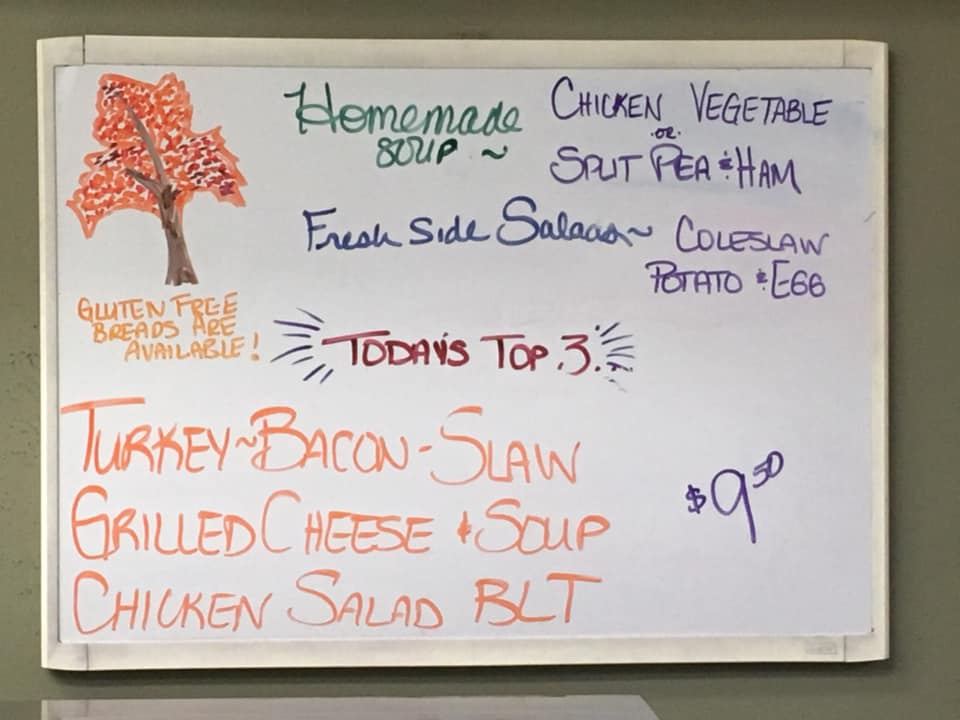 Homemade CHICKEN VEGETABLE
SOUP ~ OR
SPLIT PEA & HAM
Fresh Side Salads ~ COLESLAW
POTATO & EGG
GLUTEN FREE
BREADS ARE
AVAILABLE!
TODAY'S TOP 3.
TURKEY~BACON-SLAW
GRILLED CHEESE & SOUP
$9.50
CHICKEN SALAD BLT